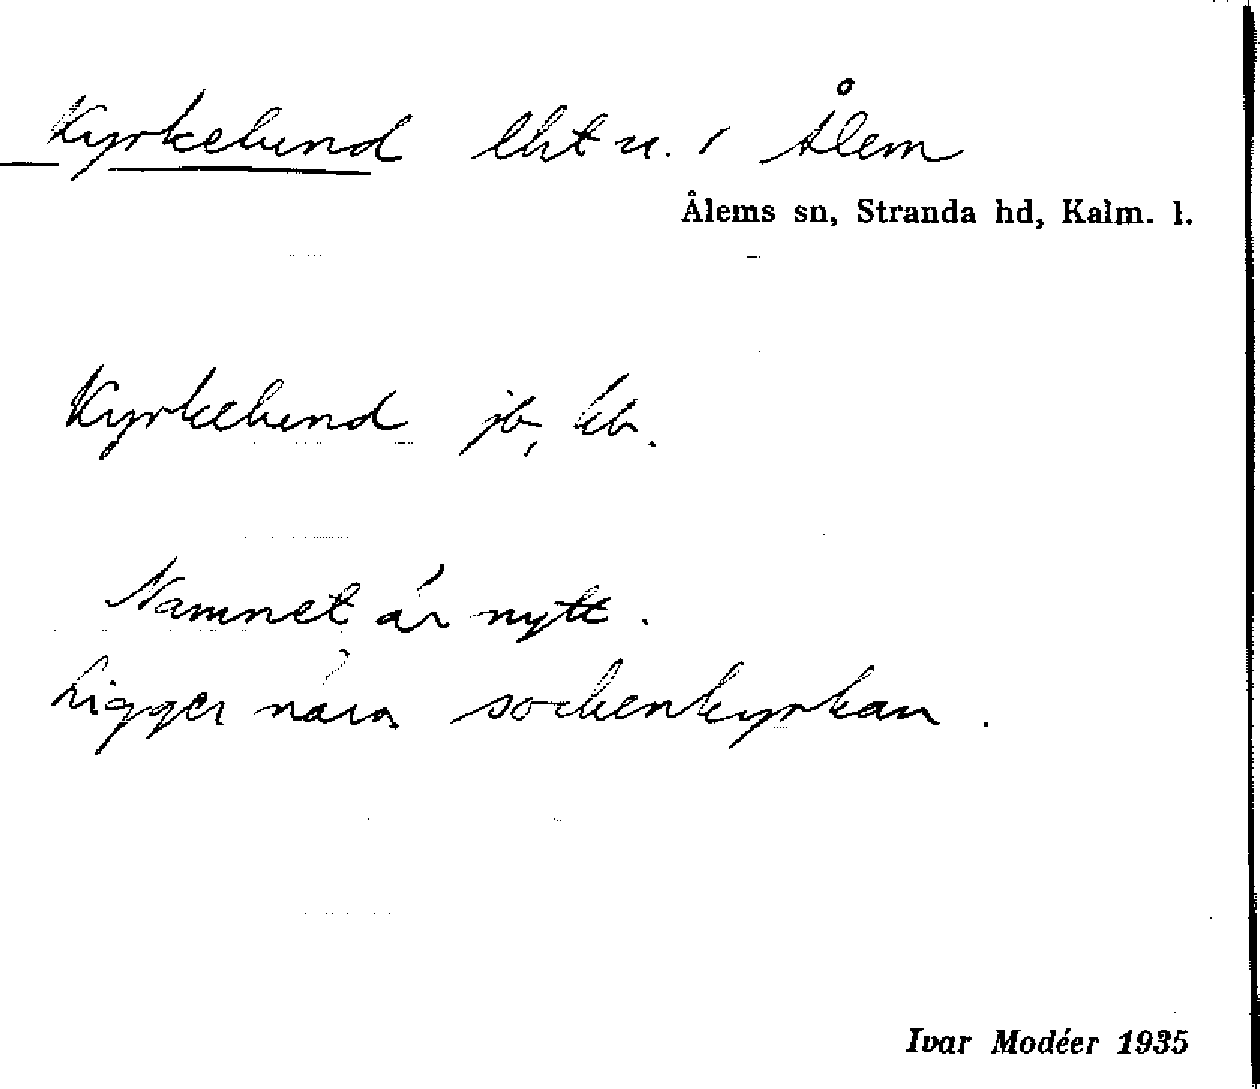 Kyrkelund lht u. i Ålem
Ålems sn, Stranda hd, Kalm. l.
Kyrkelund jb, kb.
Namnet är nytt.
Ligger nära sockenkyrkan.
Ivar Modéer 1935